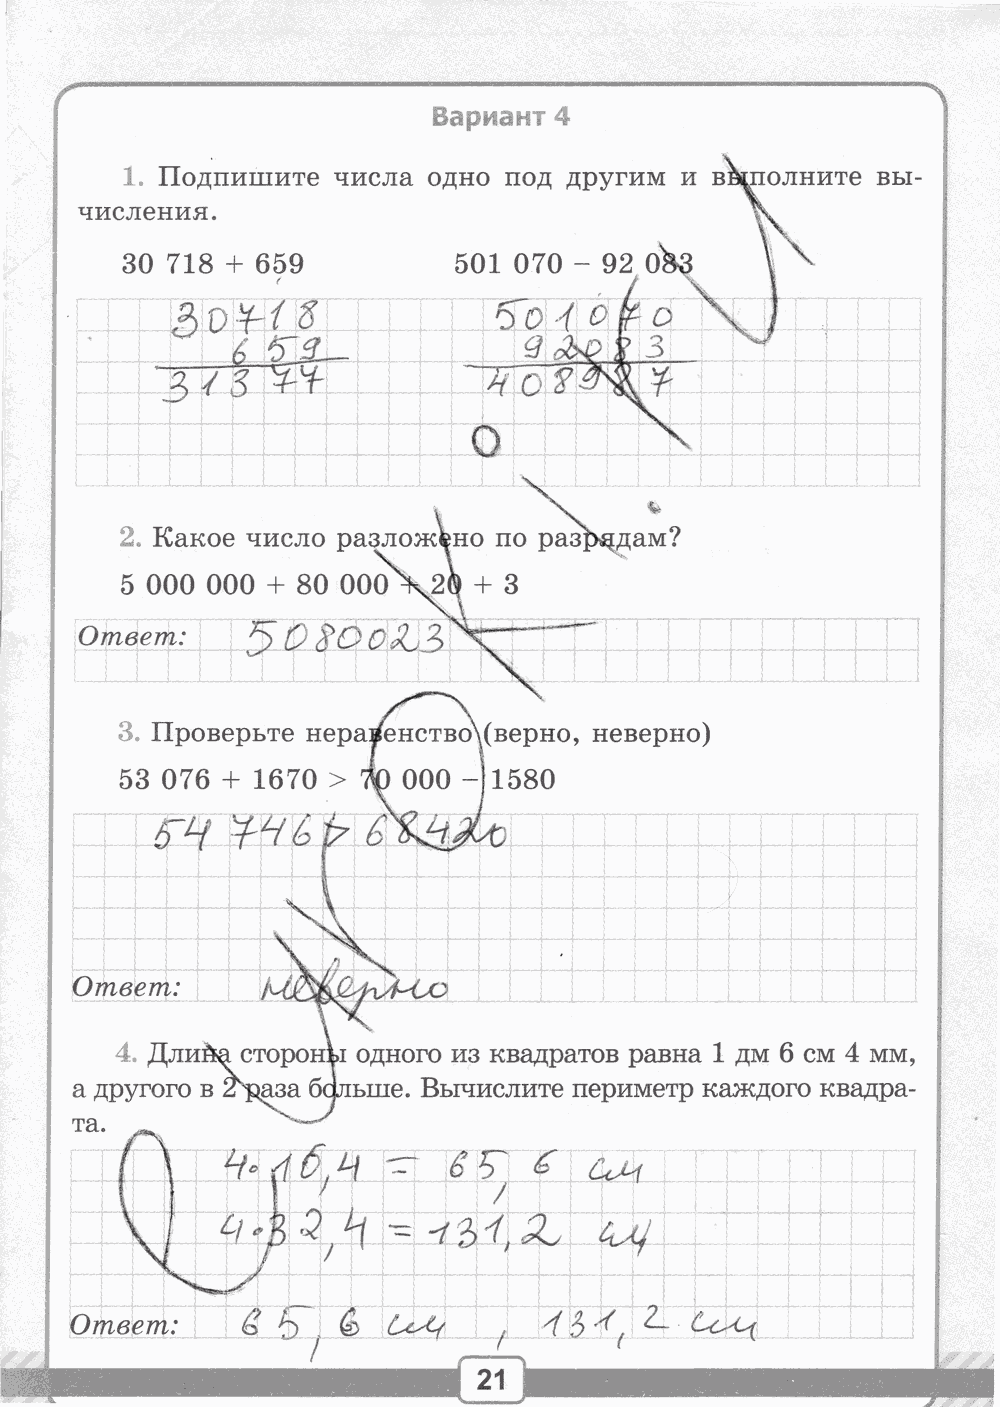 Вариант 4
1. Подпишите числа одно под другим и выполните вы-
числения.
30 718 + 659 501 070 − 92 083
30718 501070
659 92083
31377 408987
2. Какое число разложено по разрядам?
5 000 000 + 80 000 + 20 + 3
Ответ: 5080023
3. Проверьте неравенство (верно, неверно)
53 076 + 1670 > 70 000 − 1580
54 746 > 68420
Ответ: неверно
4. Длина стороны одного из квадратов равна 1 дм 6 см 4 мм,
а другого в 2 раза больше. Вычислите периметр каждого квадра-
та.
4·16,4 = 65,6 см
4·32,4 = 131,2 см
Ответ: 65,6 см , 131,2 см
21